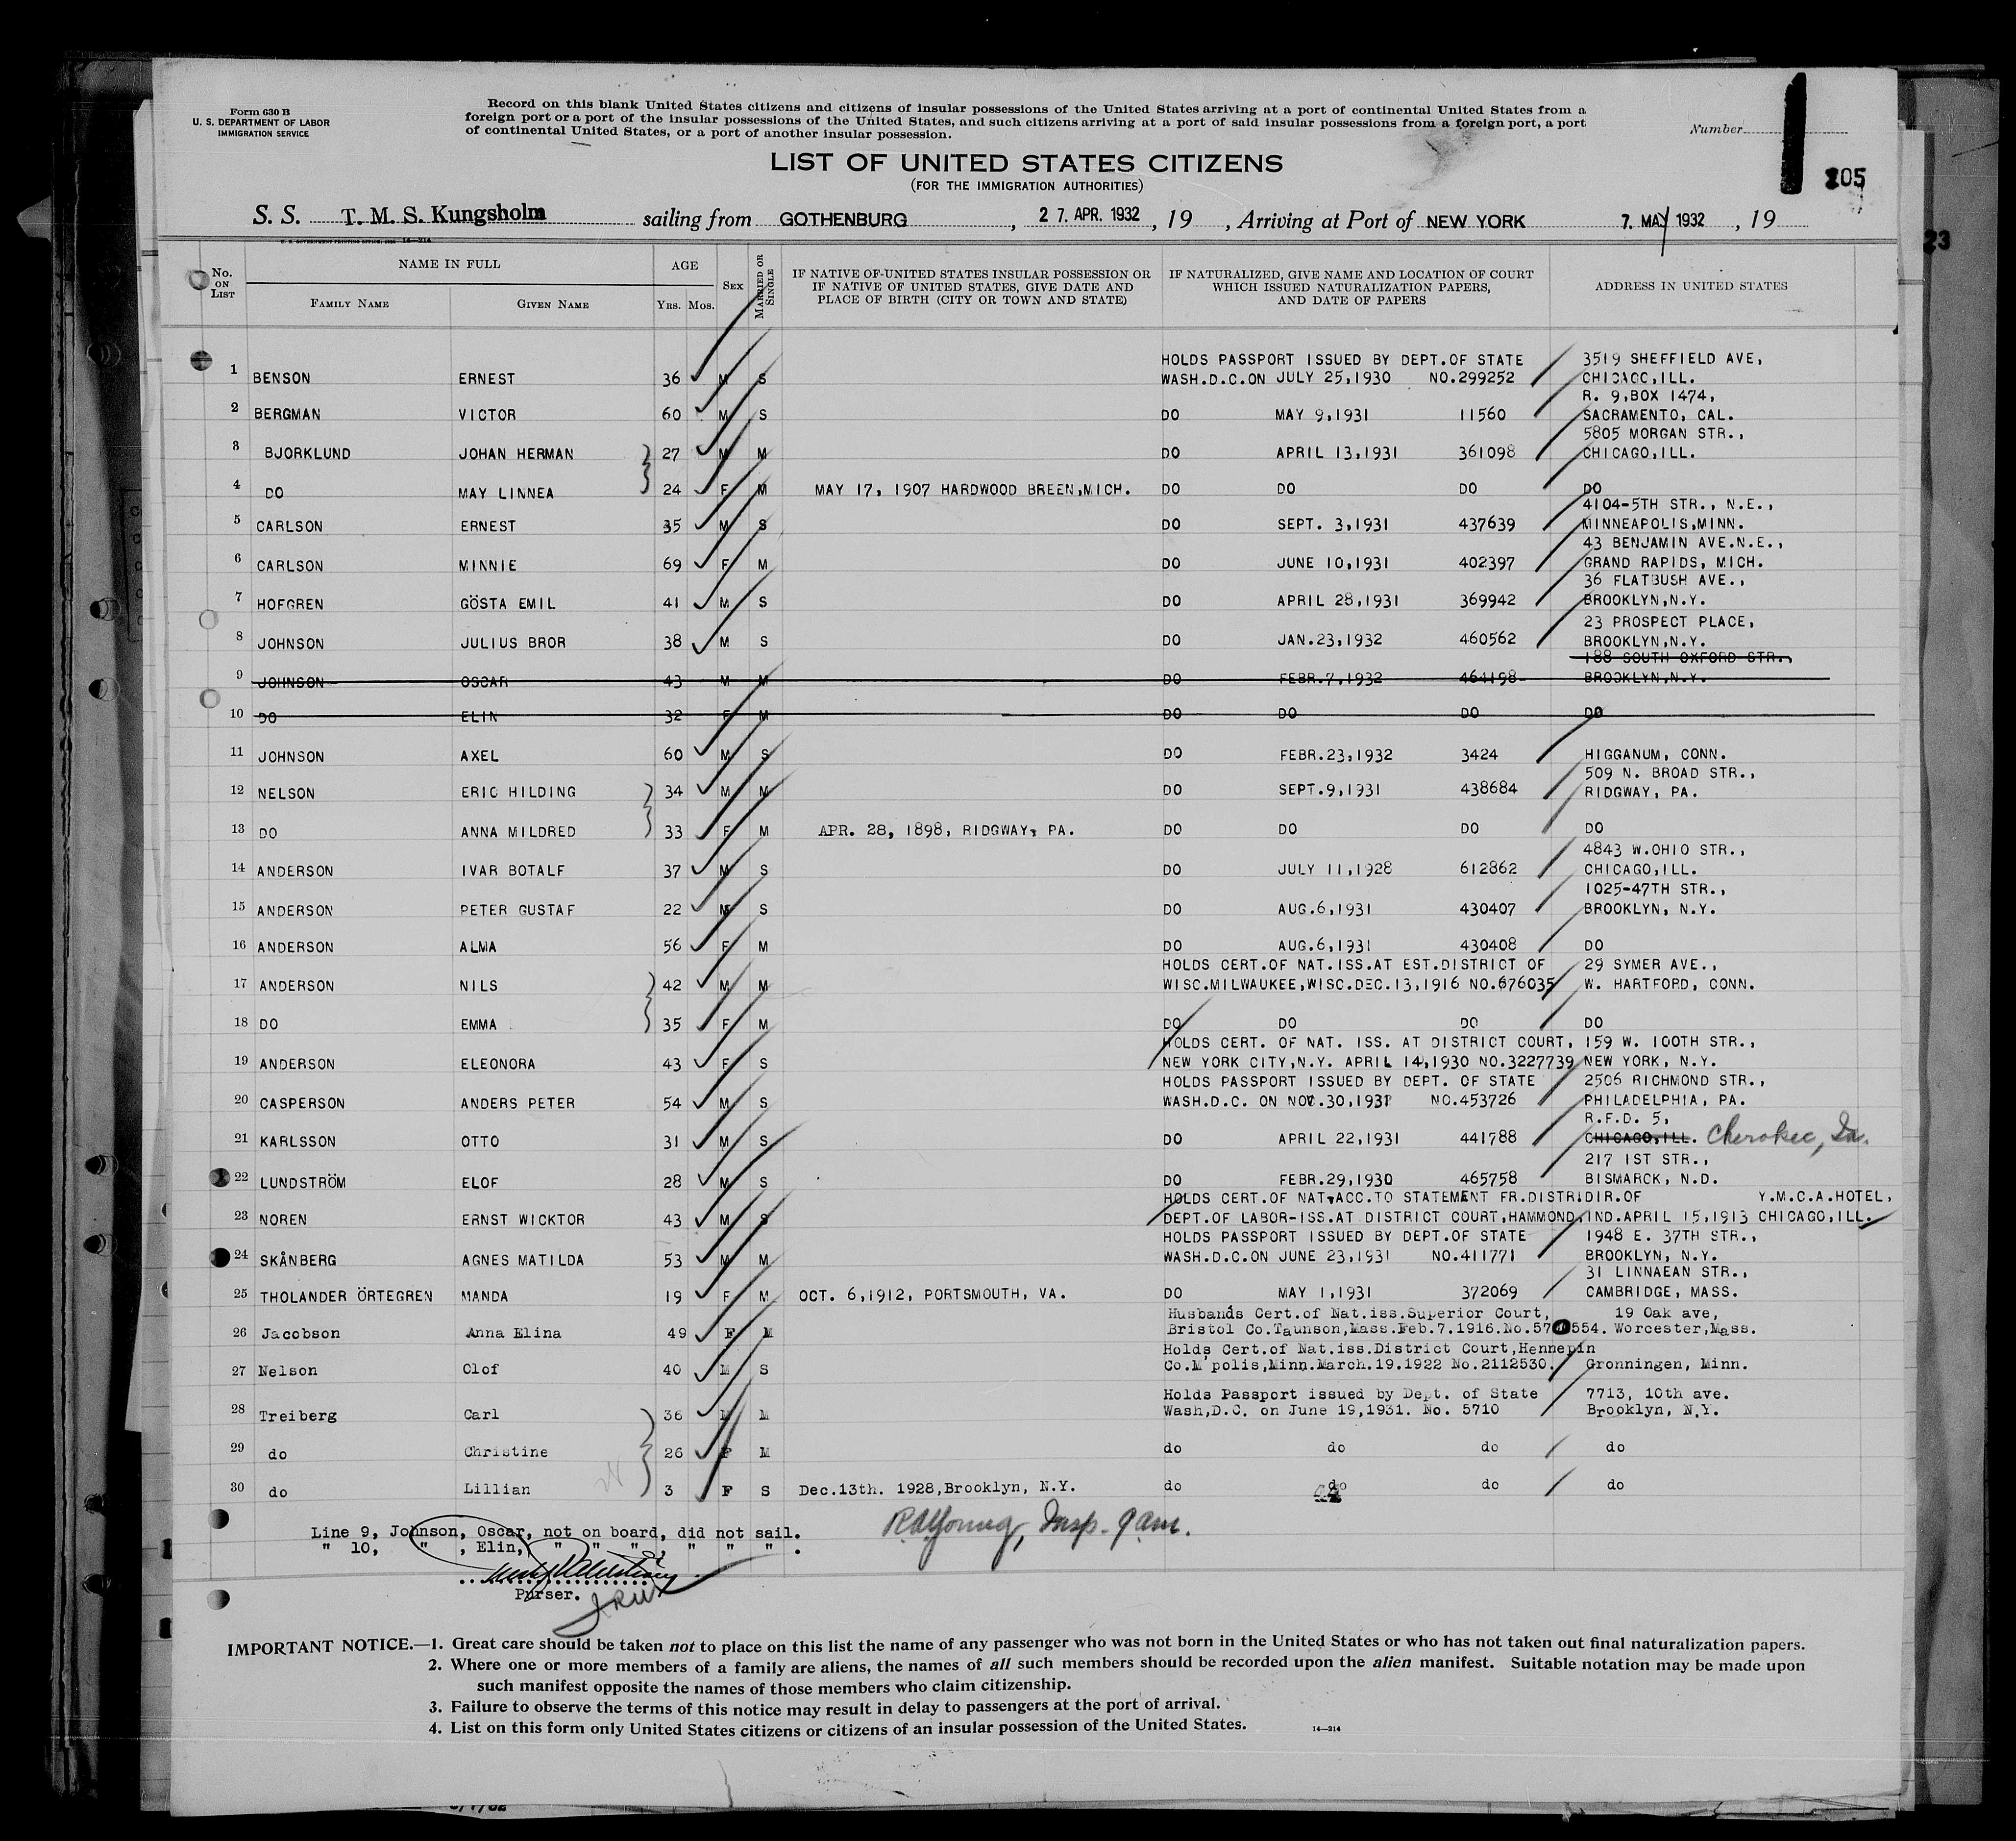 Form 630 B
U. S. DEPARTMENT OF LABOR
IMMIGRATION SERVICE
Record on this blank United States citizens and citizens of insular possessions of the United States arriving at a port of continental United States from a
foreign port or a port of the insular possessions of the United States, and such citizens arriving at a port of said insular possessions from a foreign port, a port
of continental United States, or a port of another insular possession.
Number
LIST OF UNITED STATES CITIZENS
(FOR THE IMMIGRATION AUTHORITIES)
205
S. S. T. M. S. Kungsholm sailing from GOTHENBURG, 27. APR. 1932, 19 , Arriving at Port of NEW YORK 7. MAY 1932, 19
U. S. GOVERNMENT PRINTING OFFICE: 1930 14—214
23
No. ON LIST
NAME IN FULL
FAMILY NAME
GIVEN NAME
AGE
YRS. MOS.
SEX
MARRIED OR SINGLE
IF NATIVE OF UNITED STATES INSULAR POSSESSION OR
IF NATIVE OF UNITED STATES, GIVE DATE AND
PLACE OF BIRTH (CITY OR TOWN AND STATE)
IF NATURALIZED, GIVE NAME AND LOCATION OF COURT
WHICH ISSUED NATURALIZATION PAPERS,
AND DATE OF PAPERS
ADDRESS IN UNITED STATES
HOLDS PASSPORT ISSUED BY DEPT.OF STATE 3519 SHEFFIELD AVE,
1 BENSON ERNEST 36 M S WASH.D.C.ON JULY 25,1930 NO.299252 CHICAGO,ILL.
R. 9,BOX 1474,
2 BERGMAN VICTOR 60 M S DO MAY 9,1931 11560 SACRAMENTO, CAL.
5805 MORGAN STR.,
3 BJORKLUND JOHAN HERMAN 27 M M DO APRIL 13,1931 361098 CHICAGO,ILL.
4 DO MAY LINNEA 24 F M MAY 17, 1907 HARDWOOD BREEN,MICH. DO DO DO DO
4104-5TH STR., N.E.,
5 CARLSON ERNEST 35 M S DO SEPT. 3,1931 437639 MINNEAPOLIS,MINN.
43 BENJAMIN AVE.N.E.,
6 CARLSON MINNIE 69 F M DO JUNE 10,1931 402397 GRAND RAPIDS, MICH.
36 FLATBUSH AVE.,
7 HOFGREN GÖSTA EMIL 41 M S DO APRIL 28,1931 369942 BROOKLYN,N.Y.
23 PROSPECT PLACE,
8 JOHNSON JULIUS BROR 38 M S DO JAN.23,1932 460562 BROOKLYN,N.Y.
188 SOUTH OXFORD STR.,
9 JOHNSON OSCAR 43 M M DO FEBR.7,1932 464198 BROOKLYN,N.Y.
10 DO ELIN 32 F M DO DO DO DO
11 JOHNSON AXEL 60 M S DO FEBR.23,1932 3424 HIGGANUM, CONN.
509 N. BROAD STR.,
12 NELSON ERIC HILDING 34 M M DO SEPT.9,1931 438684 RIDGWAY, PA.
13 DO ANNA MILDRED 33 F M APR. 28, 1898, RIDGWAY, PA. DO DO DO DO
4843 W.OHIO STR.,
14 ANDERSON IVAR BOTALF 37 M S DO JULY 11,1928 612862 CHICAGO,ILL.
1025-47TH STR.,
15 ANDERSON PETER GUSTAF 22 M S DO AUG.6,1931 430407 BROOKLYN, N.Y.
16 ANDERSON ALMA 56 F M DO AUG.6,1931 430408 DO
HOLDS CERT.OF NAT.ISS.AT EST.DISTRICT OF 29 SYMER AVE.,
17 ANDERSON NILS 42 M M WISC.MILWAUKEE,WISC.DEC.13,1916 NO.676035 W. HARTFORD, CONN.
18 DO EMMA 35 F M DO DO DO DO
HOLDS CERT. OF NAT. ISS. AT DISTRICT COURT, 159 W. 100TH STR.,
19 ANDERSON ELEONORA 43 F S NEW YORK CITY,N.Y. APRIL 14,1930 NO.3227739 NEW YORK, N.Y.
HOLDS PASSPORT ISSUED BY DEPT. OF STATE 2506 RICHMOND STR.,
20 CASPERSON ANDERS PETER 54 M S WASH.D.C. ON NOV.30,1931 NO.453726 PHILADELPHIA, PA.
R.F.D. 5,
21 KARLSSON OTTO 31 M S DO APRIL 22,1931 441788 CHICAGO,ILL. Cherokee, Ia.
217 1ST STR.,
22 LUNDSTRÖM ELOF 28 M S DO FEBR.29,1930 465758 BISMARCK, N.D.
HOLDS CERT.OF NAT.ACC.TO STATEMENT FR.DISTRIDIR.OF Y.M.C.A.HOTEL,
23 NOREN ERNST WICKTOR 43 M S DEPT.OF LABOR-ISS.AT DISTRICT COURT,HAMMOND,IND.APRIL 15,1913 CHICAGO,ILL.
HOLDS PASSPORT ISSUED BY DEPT.OF STATE 1948 E. 37TH STR.,
24 SKÅNBERG AGNES MATILDA 53 M M WASH.D.C.ON JUNE 23,1931 NO.411771 BROOKLYN, N.Y.
31 LINNAEAN STR.,
25 THOLANDER ÖRTEGREN MANDA 19 F M OCT. 6,1912, PORTSMOUTH, VA. DO MAY 1,1931 372069 CAMBRIDGE, MASS.
Husbands Cert.of Nat.iss.Superior Court, 19 Oak ave,
26 Jacobson Anna Elina 49 F M Bristol Co.Taunson,Mass.Feb.7.1916.No.57 554. Worcester,Mass.
Holds Cert.of Nat.iss.District Court,Hennepin
27 Nelson Olof 40 M S Co.M'polis,Minn.March.19.1922 No.2112530. Gronningen, Minn.
Holds Passport issued by Dept. of State 7713, 10th ave.
28 Treiberg Carl 36 M M Wash,D.C. on June 19,1931. No. 5710 Brooklyn, N.Y.
29 do Christine 26 F M do do do do
30 do Lillian 3 F S Dec.13th. 1928,Brooklyn, N.Y. do do do do
Line 9, Johnson, Oscar, not on board, did not sail.
" 10, " , Elin, " " " , " " " .
Insp. 9 am.
Purser.
IMPORTANT NOTICE.—1. Great care should be taken not to place on this list the name of any passenger who was not born in the United States or who has not taken out final naturalization papers.
2. Where one or more members of a family are aliens, the names of all such members should be recorded upon the alien manifest. Suitable notation may be made upon
such manifest opposite the names of those members who claim citizenship.
3. Failure to observe the terms of this notice may result in delay to passengers at the port of arrival.
4. List on this form only United States citizens or citizens of an insular possession of the United States.
14—214